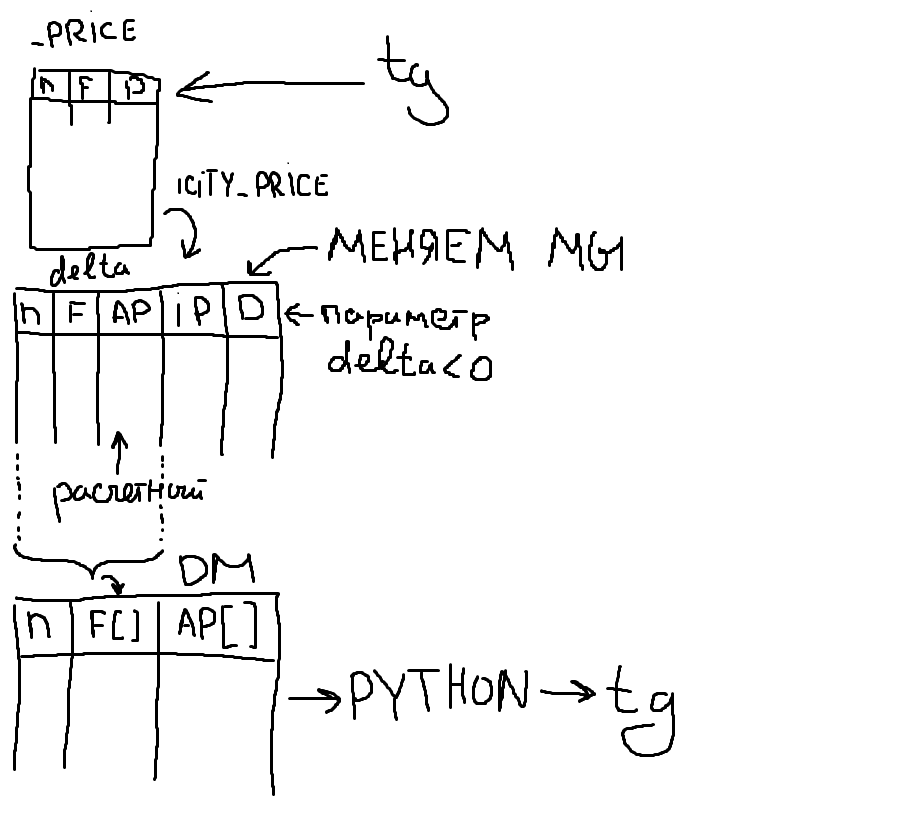 _PRICE
n F P
tg
iCiTY_PRICE
МЕНЯЕМ МЫ
delta
n F AP iP D
параметр
delta<0
расчетный
DM
n F[] AP[]
PYTHON
tg